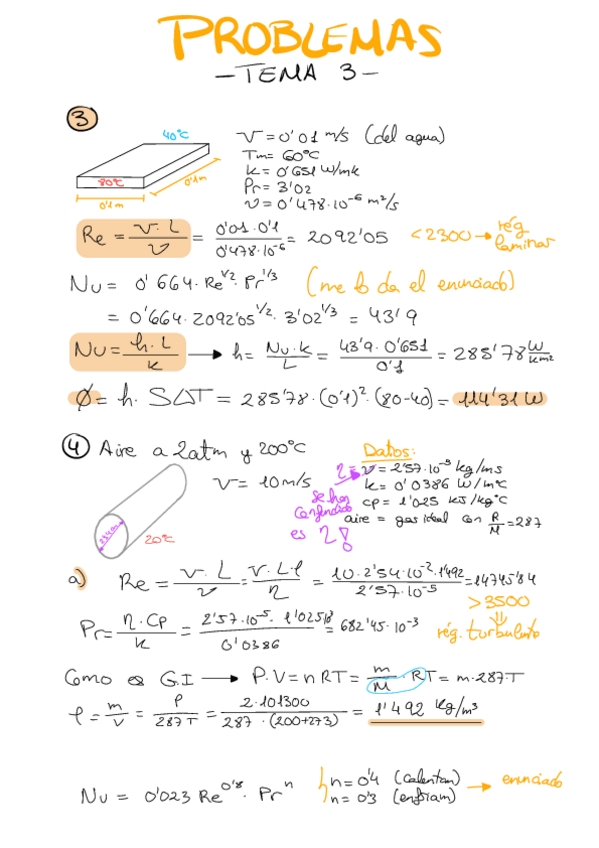 PROBLEMAS
- TEMA 3 -
3
40°C
80°C
0'1m
0'1m
V = 0'01 m/s (del agua)
Tm = 60°C
k = 0'651 W/mk
Pr = 3'02
ν = 0'478·10⁻⁶ m²/s
Re = v·L/ν = 0'01·0'1/0'478·10⁻⁶ = 2092'05 < 2300 → rég. laminar
Nu = 0'664·Re^1/2·Pr^1/3 (me lo da el enunciado)
= 0'664·2092'05^1/2·3'02^1/3 = 43'9
Nu = h·L/k → h = Nu·k/L = 43'9·0'651/0'1 = 285'78 W/km²
Ø = h·SΔT = 285'78·(0'1)²·(80-40) = 114'31 W
4 Aire a 2atm y 200°C
V = 10 m/s
2'54cm
20°C
Datos:
η = ν = 2'57·10⁻⁵ kg/ms
k = 0'0386 W/m°C
cp = 1'025 kJ/kg°C
aire = gas ideal con R/M = 287
se han confundido
es η!
a) Re = v·L/ν = v·L·ρ/η = 10·2'54·10⁻²·1'492/2'57·10⁻⁵ = 14745'84
> 3500
⇓
rég. turbulento
Pr = η·Cp/k = 2'57·10⁻⁵·1'025·10³/0'0386 = 682'45·10⁻³
Como es G.I → P·V = nRT = m/M·RT = m·287·T
ρ = m/v = P/287T = 2·101300/287·(200+273) = 1'492 kg/m³
Nu = 0'023 Re^0'8·Pr^n
n = 0'4 (calentam)
n = 0'3 (enfriam)
→ enunciado